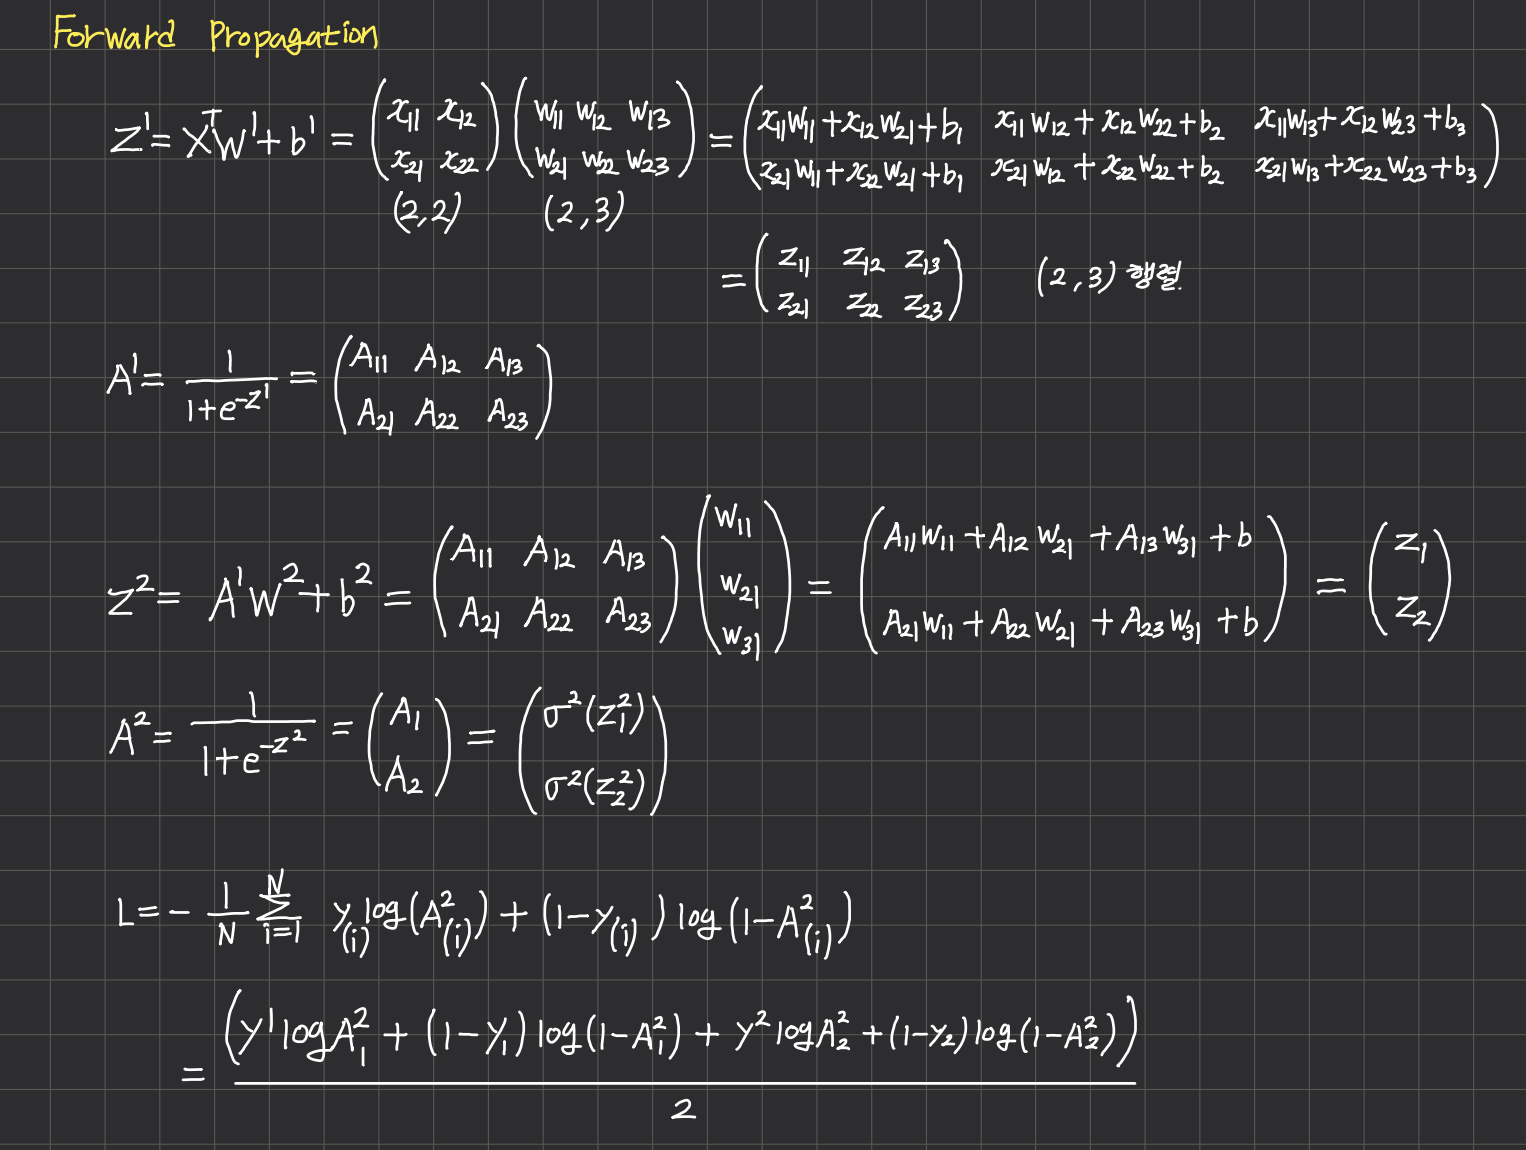 Forward Propagation
Z¹ = XᵀW¹ + b¹ = (x₁₁ x₁₂ ; x₂₁ x₂₂) (W₁₁ W₁₂ W₁₃ ; W₂₁ W₂₂ W₂₃) = (x₁₁W₁₁+x₁₂W₂₁+b₁  x₁₁W₁₂+x₁₂W₂₂+b₂  x₁₁W₁₃+x₁₂W₂₃+b₃ ; x₂₁W₁₁+x₂₂W₂₁+b₁  x₂₁W₁₂+x₂₂W₂₂+b₂  x₂₁W₁₃+x₂₂W₂₃+b₃)
(2,2) (2,3)
= (Z₁₁ Z₁₂ Z₁₃ ; Z₂₁ Z₂₂ Z₂₃) (2,3) 행렬.
A¹ = 1/(1+e^(-Z¹)) = (A₁₁ A₁₂ A₁₃ ; A₂₁ A₂₂ A₂₃)
Z² = A¹W² + b² = (A₁₁ A₁₂ A₁₃ ; A₂₁ A₂₂ A₂₃) (W₁₁ ; W₂₁ ; W₃₁) = (A₁₁W₁₁+A₁₂W₂₁+A₁₃W₃₁+b ; A₂₁W₁₁+A₂₂W₂₁+A₂₃W₃₁+b) = (Z₁ ; Z₂)
A² = 1/(1+e^(-Z²)) = (A₁ ; A₂) = (σ²(Z₁²) ; σ²(Z₂²))
L = - 1/N Σ_{i=1}^{N} y_(i) log(A²_(i)) + (1-y_(i)) log(1-A²_(i))
= (y¹ log A₁² + (1-y₁) log(1-A₁²) + y² log A₂² + (1-y₂) log(1-A₂²)) / 2